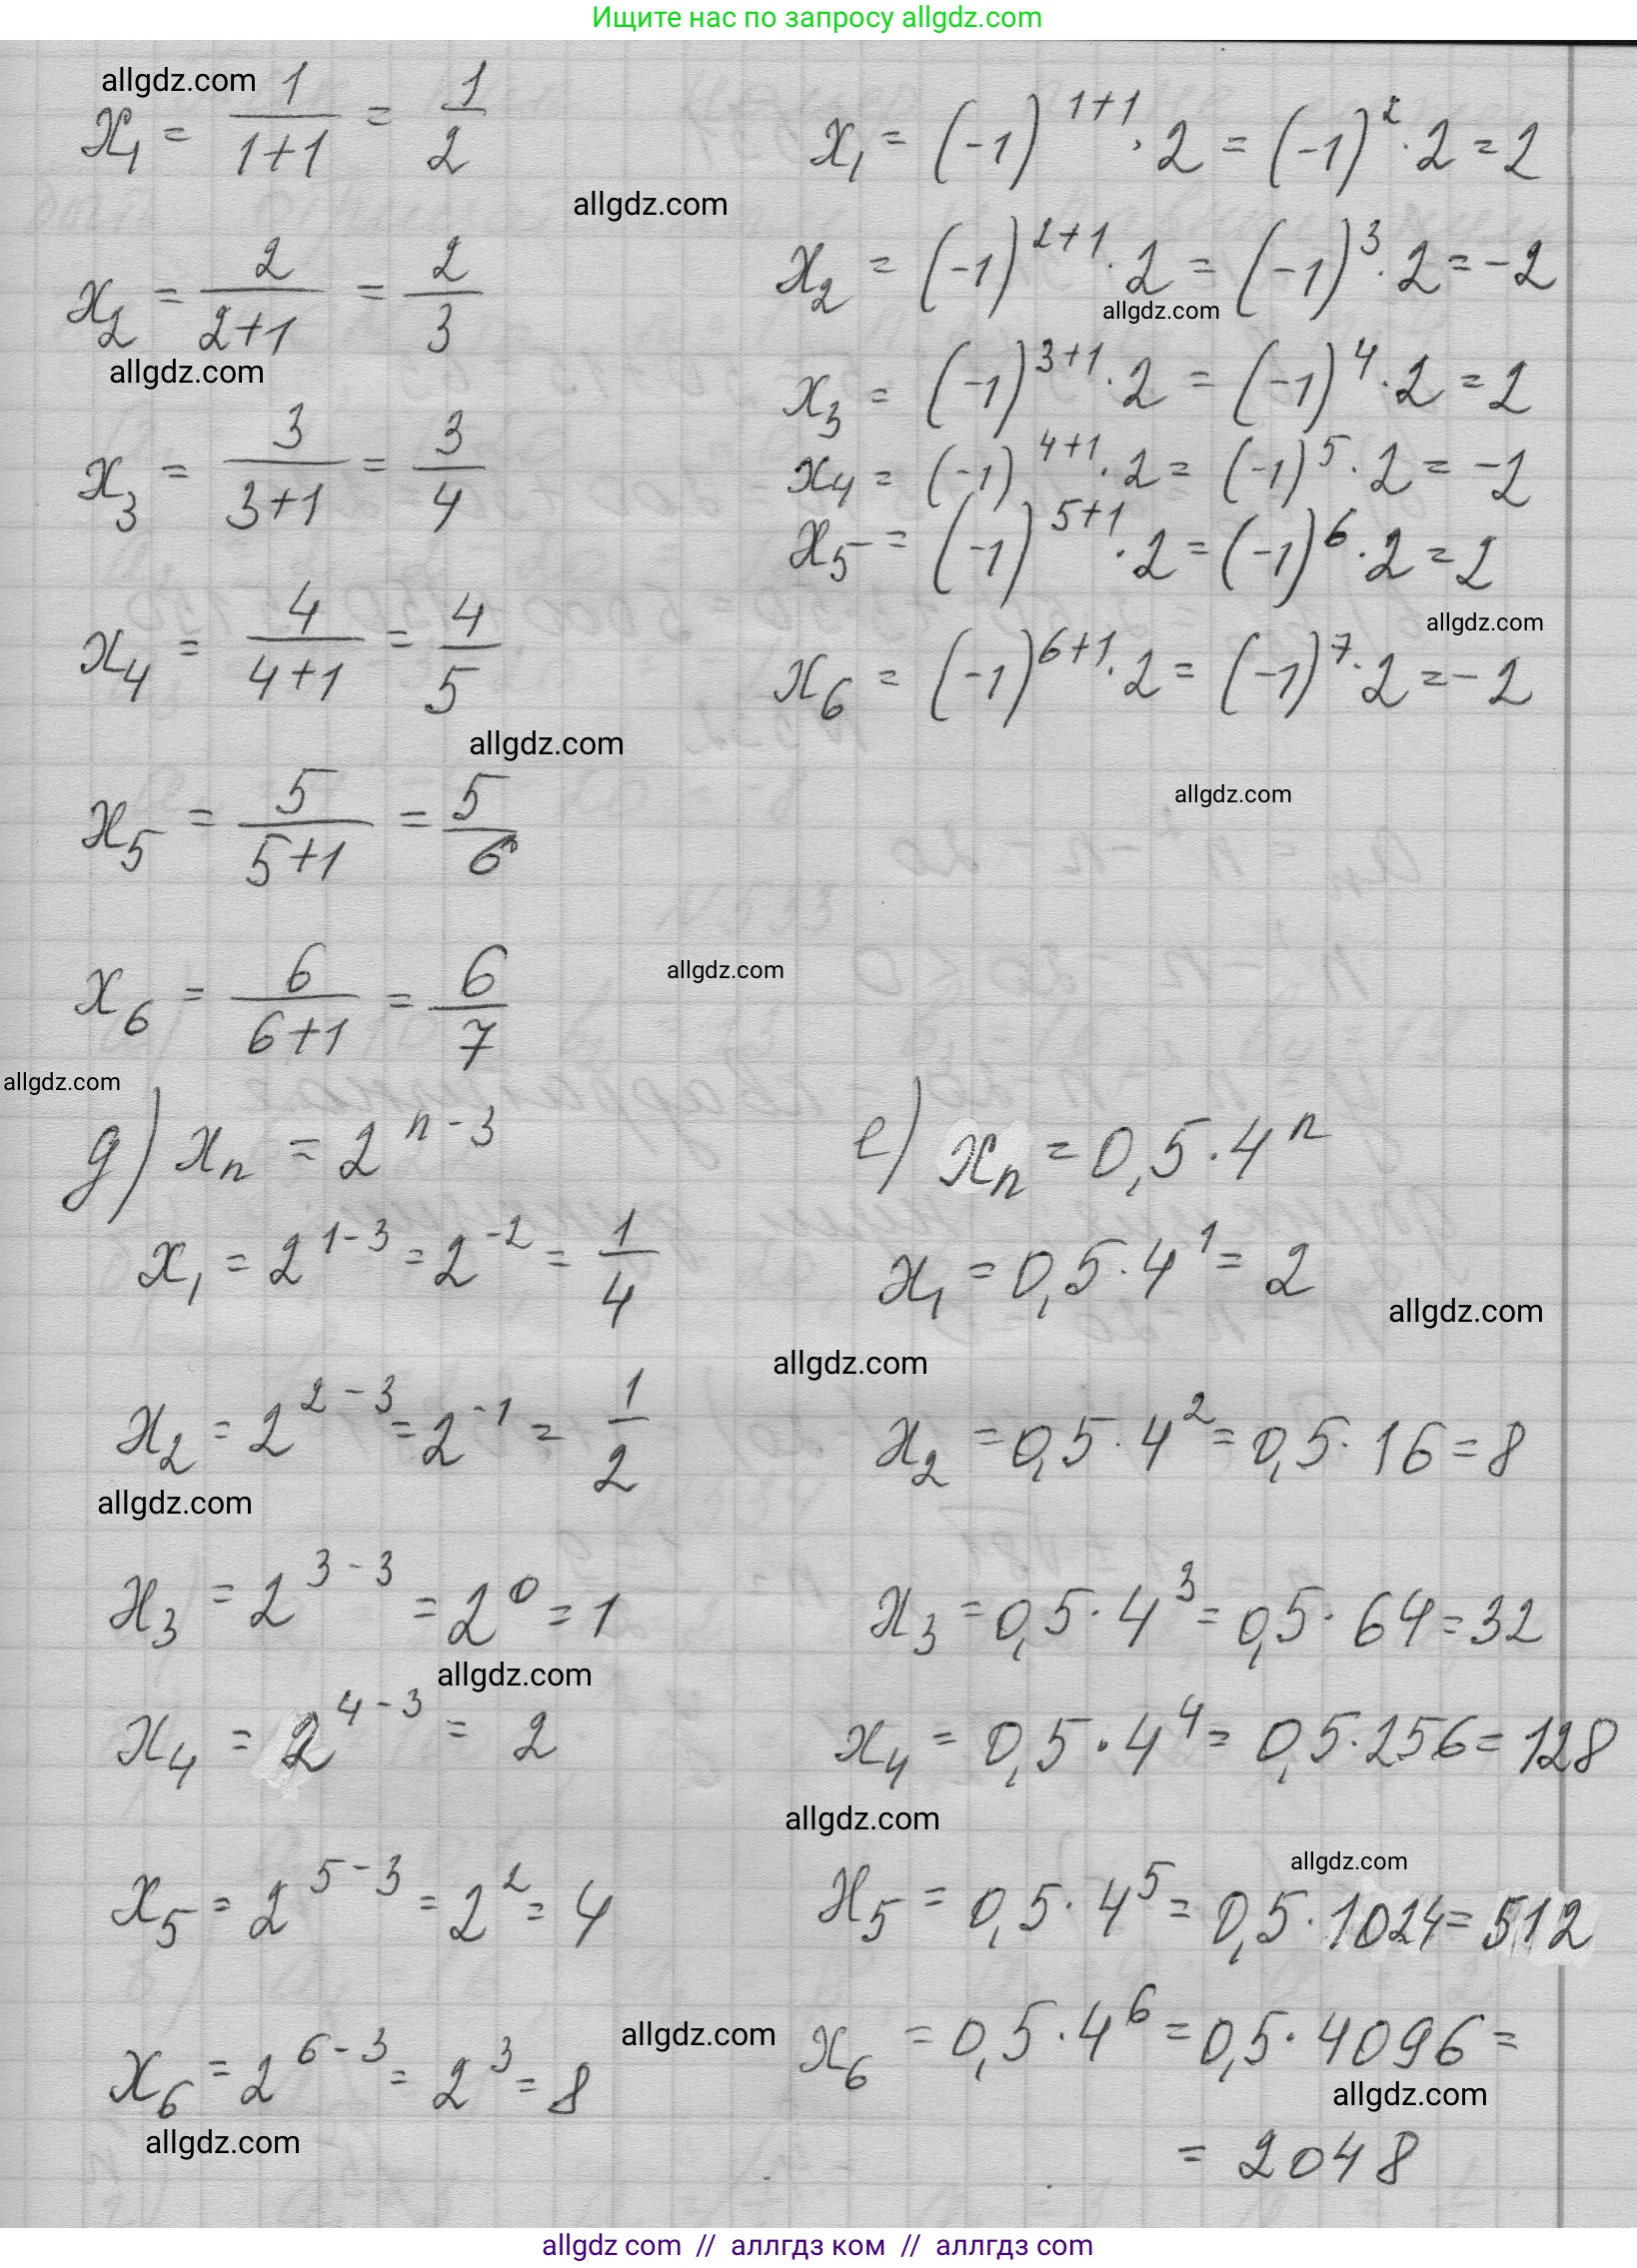 Ищите нас по запросу allgdz.com
allgdz.com
x₁ = 1/(1+1) = 1/2
allgdz.com
x₂ = 2/(2+1) = 2/3
allgdz.com
x₃ = 3/(3+1) = 3/4
x₄ = 4/(4+1) = 4/5
allgdz.com
x₅ = 5/(5+1) = 5/6
x₆ = 6/(6+1) = 6/7
allgdz.com
allgdz.com
x₁ = (-1)^(1+1) · 2 = (-1)² · 2 = 2
x₂ = (-1)^(2+1) · 2 = (-1)³ · 2 = -2
allgdz.com
x₃ = (-1)^(3+1) · 2 = (-1)⁴ · 2 = 2
x₄ = (-1)^(4+1) · 2 = (-1)⁵ · 2 = -2
x₅ = (-1)^(5+1) · 2 = (-1)⁶ · 2 = 2
allgdz.com
x₆ = (-1)^(6+1) · 2 = (-1)⁷ · 2 = -2
allgdz.com
д) xₙ = 2^(n-3)
x₁ = 2^(1-3) = 2^(-2) = 1/4
x₂ = 2^(2-3) = 2^(-1) = 1/2
allgdz.com
x₃ = 2^(3-3) = 2⁰ = 1
allgdz.com
x₄ = 2^(4-3) = 2
x₅ = 2^(5-3) = 2² = 4
x₆ = 2^(6-3) = 2³ = 8
allgdz.com
е) xₙ = 0,5 · 4ⁿ
x₁ = 0,5 · 4¹ = 2
allgdz.com
allgdz.com
x₂ = 0,5 · 4² = 0,5 · 16 = 8
x₃ = 0,5 · 4³ = 0,5 · 64 = 32
x₄ = 0,5 · 4⁴ = 0,5 · 256 = 128
allgdz.com
allgdz.com
x₅ = 0,5 · 4⁵ = 0,5 · 1024 = 512
allgdz.com
x₆ = 0,5 · 4⁶ = 0,5 · 4096 =
allgdz.com
= 2048
allgdz.com // аллгдз ком // аллгдз com